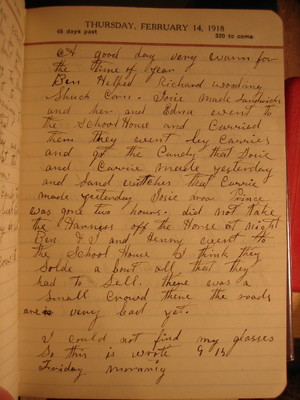 THURSDAY, FEBRUARY 14, 1918
45 days past 320 to come
A good day very warm for
the time of year
Ben Helped Richard wooding
Shuck Corn. Josie made Sandwiches
and her and Edna went to
the School House and Carried
them they went by Carries
and got the Candy that Josie
and Carrie made yesterday
and Sand witches that Carrie
made yesterday Josie Prince
was gone two hours. did not take
the Harness off the Horse at Night
Ben and Henny went to
the School House I think they
Solde a bout all that they
had to Sell. there was a
Small Crowd there the roads
are very bad yet.
I could not find my glasses
So this is wrote 15
Friday morning